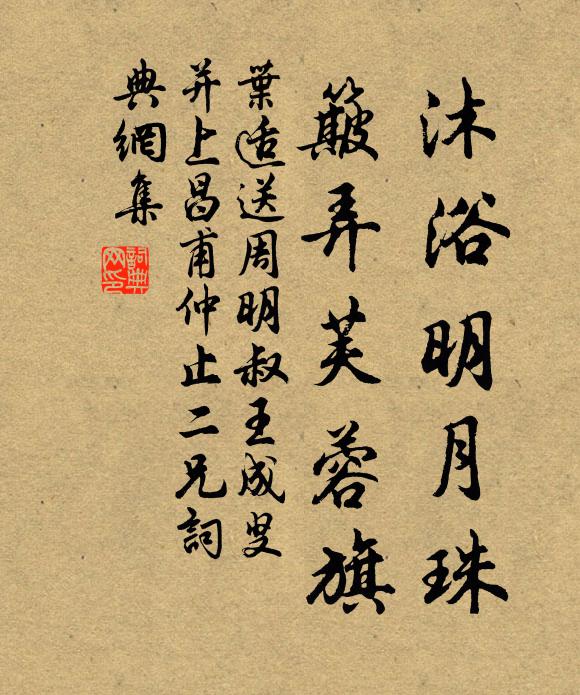 沐浴明月珠
簸弄芙蓉旗
葉适送周明叔王成叟
并上昌甫仲止二兄詞
典網集
詞典網印